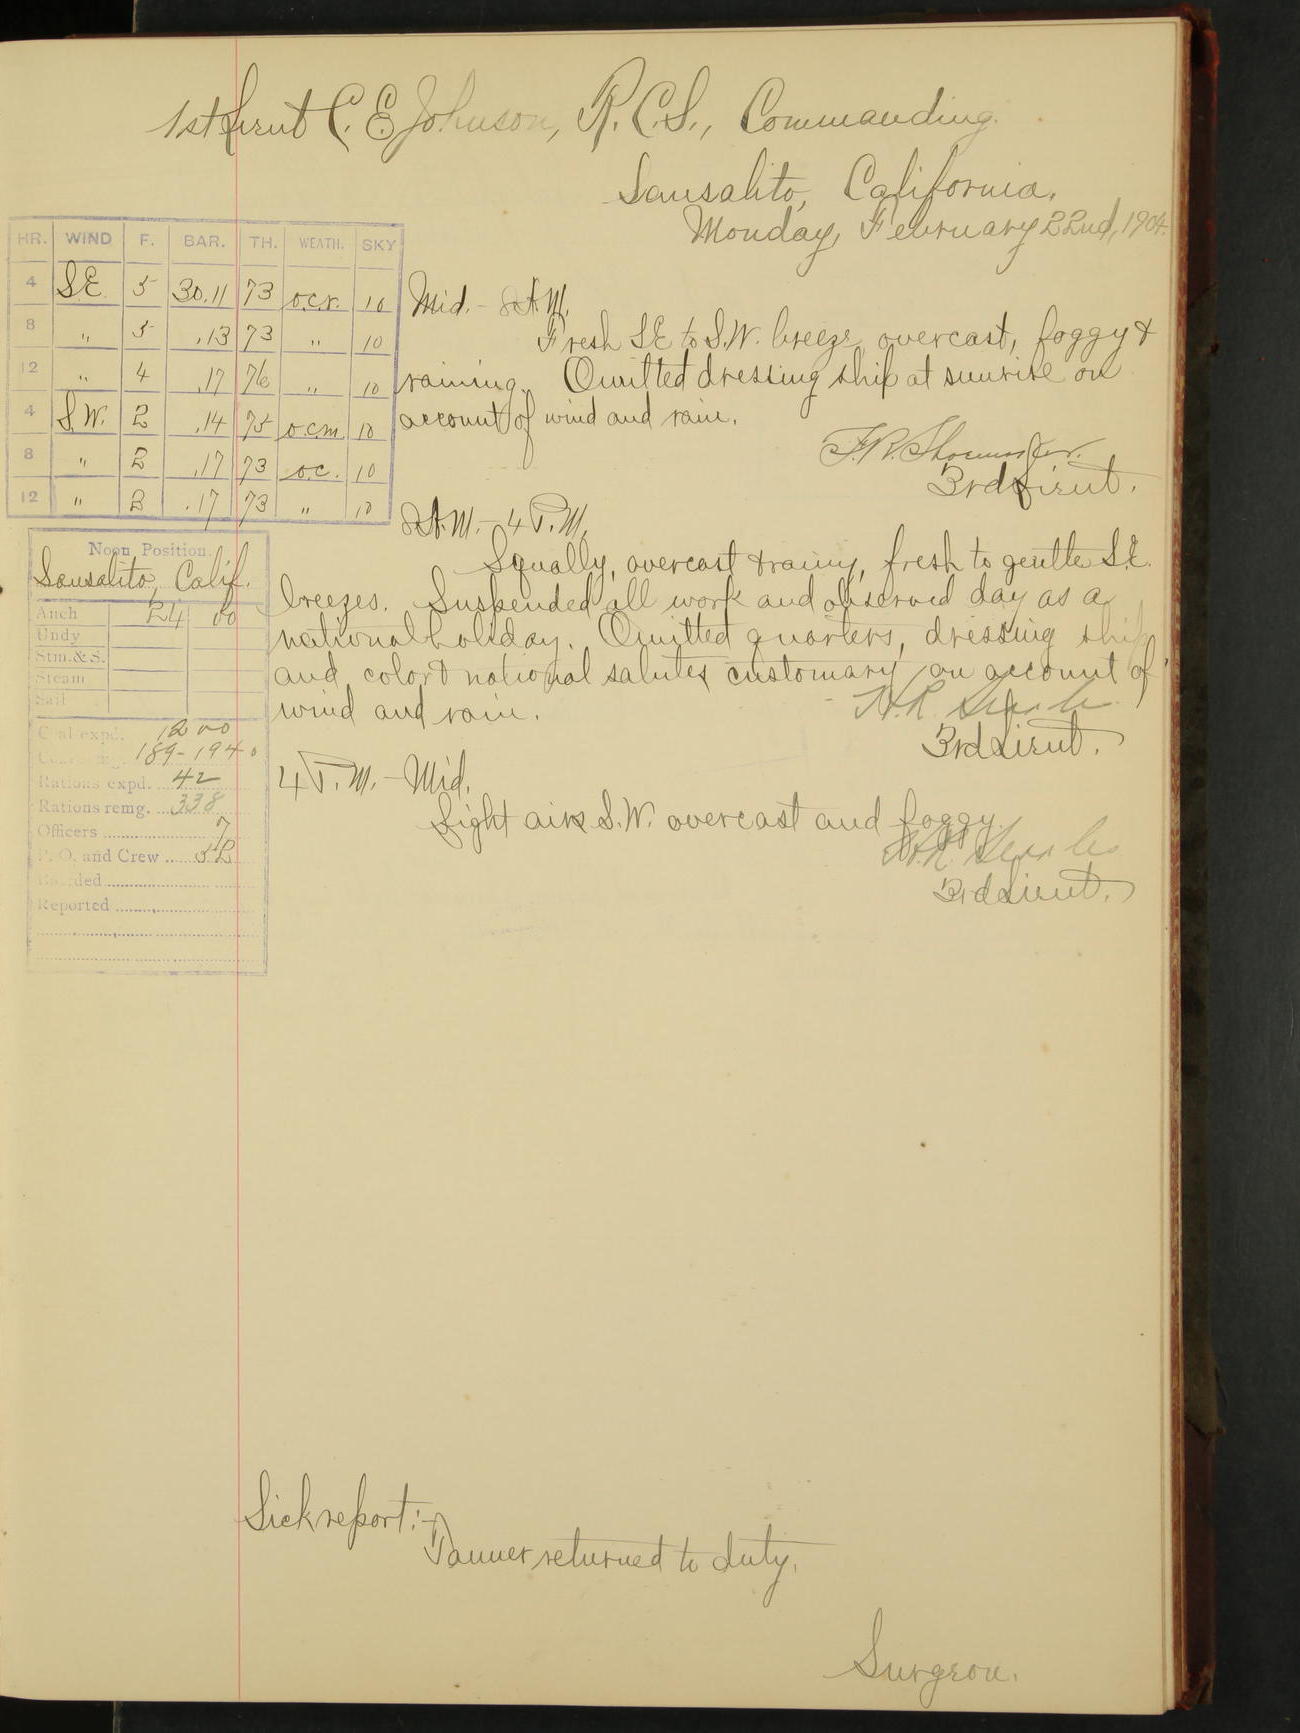 1st Lieut C. E. Johnson, R.C.S., Commanding.
Sausalito, California.
Monday, February 22nd, 1904.
HR. WIND F. BAR. TH. WEATH. SKY
4 S.E. 5 30.11 73 o.c.r. 10
8 " 5 .13 73 " 10
12 " 4 .17 76 " 10
4 S.W. 2 .14 75 o.c.m. 10
8 " 2 .17 73 o.c. 10
12 " 2 .17 73 " 10
Mid. - 8 A.M.
Fresh S.E. to S.W. breeze, overcast, foggy &
raining. Omitted dressing ship at sunrise on
account of wind and rain.
F.R. Shoemaker.
3rd Lieut.
Noon Position.
Sausalito, Calif.
Anch 24 00
Undy
Stm. & S.
Steam
Sail
Coal expd. 1200
189-1940
Rations expd. 42
Rations remg. 338
Officers 7
P. O. and Crew 52
Boarded
Reported
8 A.M. - 4 P.M.
Squally, overcast & rainy, fresh to gentle S.E.
breezes. Suspended all work and observed day as a
national holiday. Omitted quarters, dressing ship
and color & national salutes customary on account of
wind and rain.
3rd Lieut.
4 P.M. - Mid.
Light airs S.W. overcast and foggy.
3rd Lieut.
Sick report:-
Tanner returned to duty.
Surgeon.